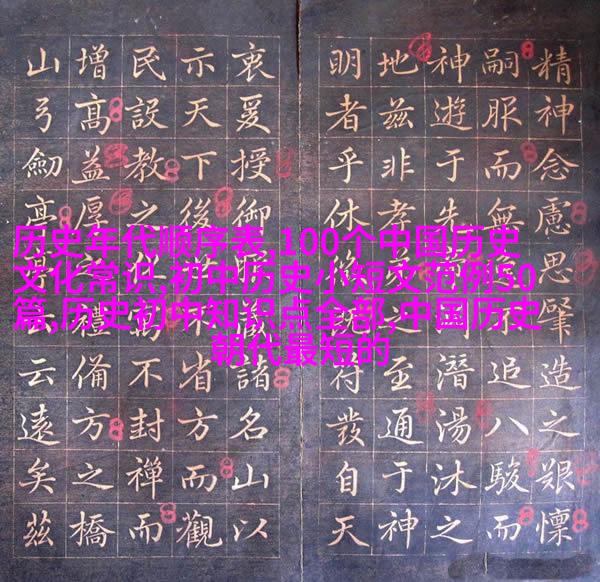 历史年代顺序表,100个中国历史
文化常识,初中历史小短文范例50
篇,历史初中知识点全部,中国历史
朝代最短的
精神念慮思肇造之艱懍
嗣服而無追八駿而
神遊于先潛湯沐之
地茲非孝至通于神
明者乎休符發自天
衷爰授御諸名山以
示天下後省方而觀
民設教之不封禪而
增高益厚禮備方之橋
山弓劍云遠矣茲